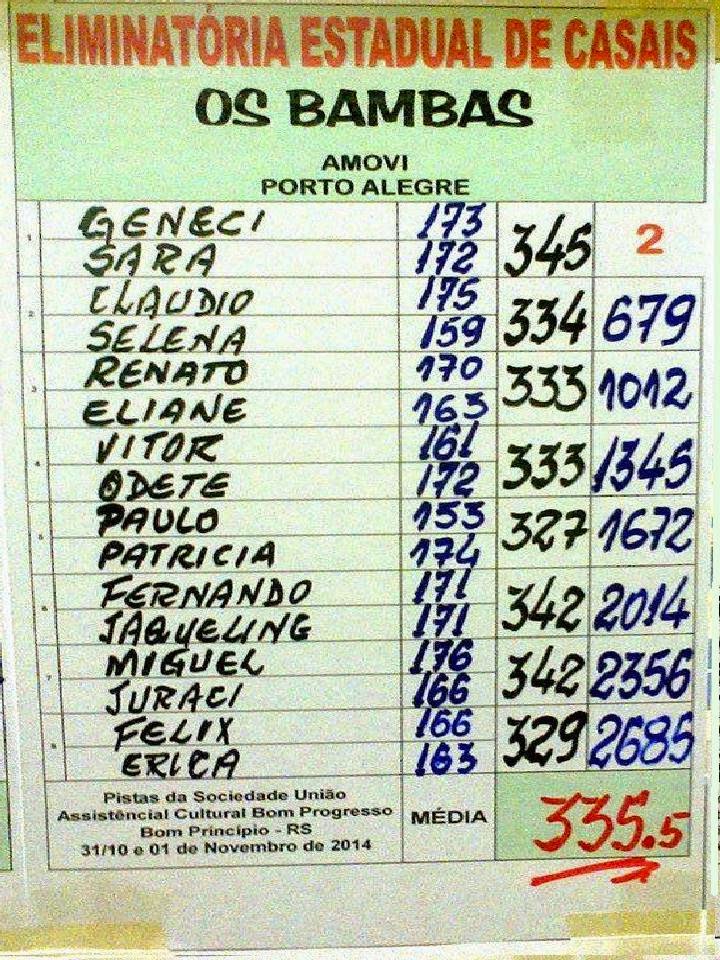 ELIMINATÓRIA ESTADUAL DE CASAIS
OS BAMBAS
AMOVI
PORTO ALEGRE
1 GENECI 173 345 2
SARA 172
2 CLAUDIO 175 334 679
SELENA 159
3 RENATO 170 333 1012
ELIANE 163
4 VITOR 161 333 1345
ODETE 172
5 PAULO 153 327 1672
PATRICIA 174
6 FERNANDO 171 342 2014
JAQUELING 171
7 MIGUEL 176 342 2356
JURACI 166
8 FELIX 166 329 2685
ERICA 163
Pistas da Sociedade União
Assistêncial Cultural Bom Progresso
Bom Princípio - RS
31/10 e 01 de Novembro de 2014
MÉDIA
335.5